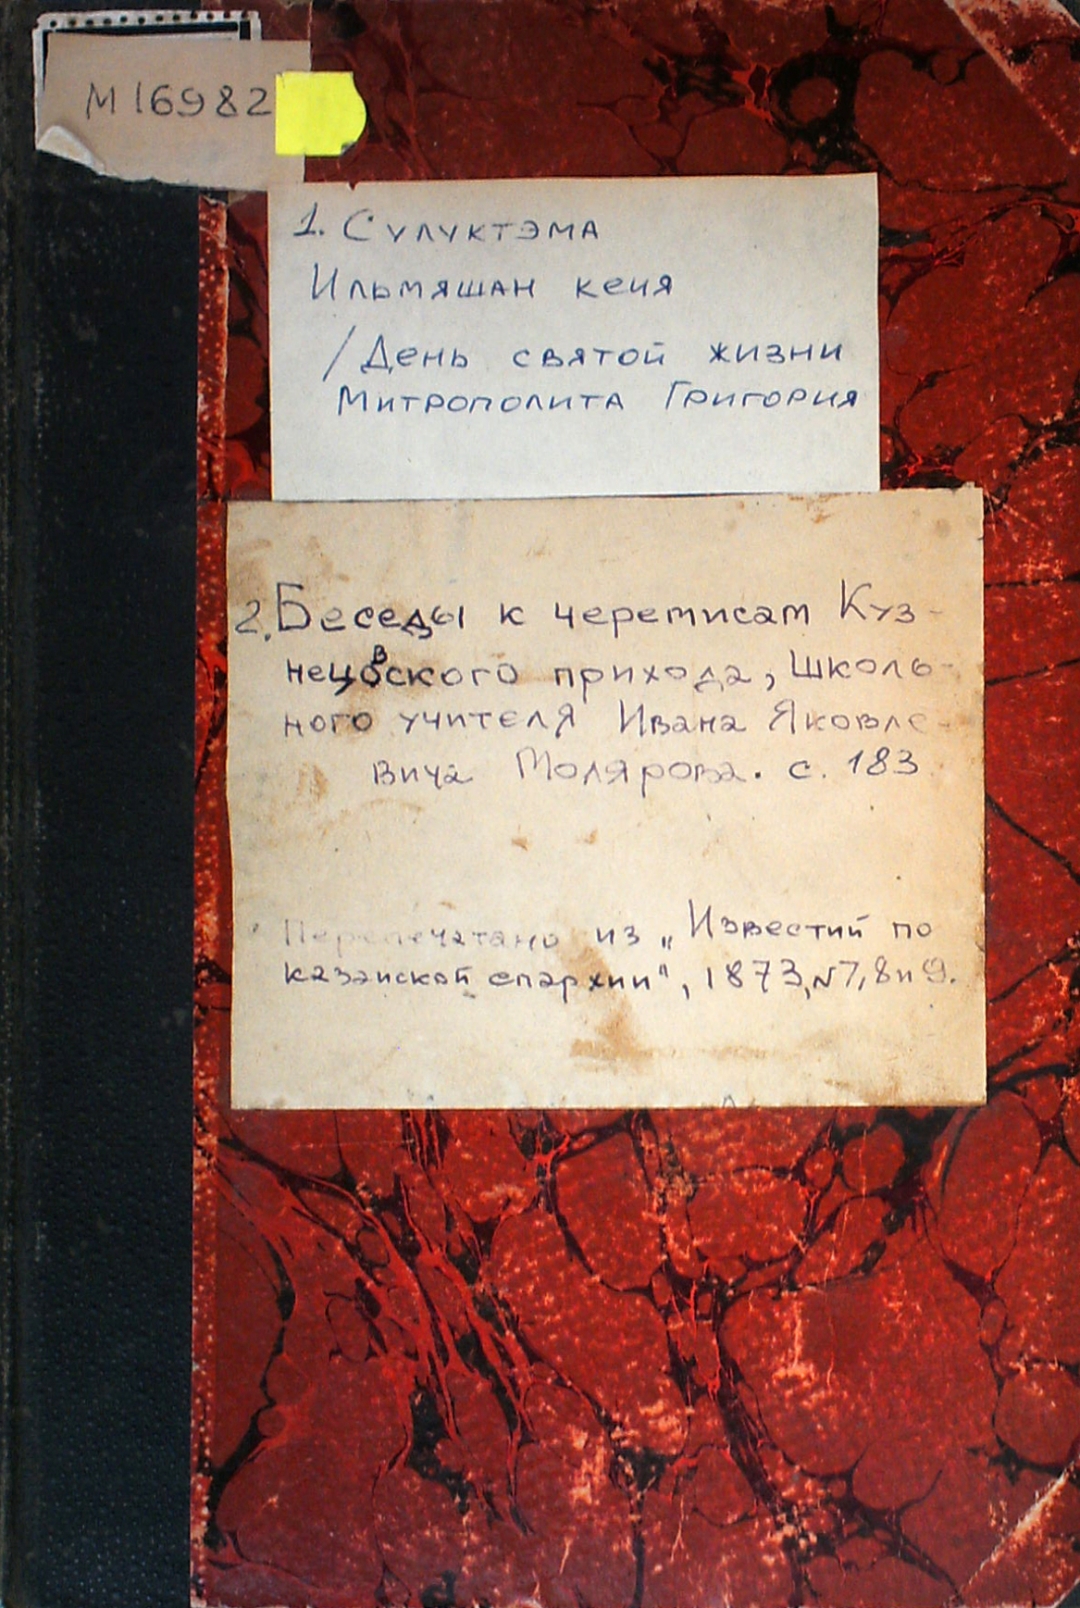 М 16982
1. Сулуктэма
Ильмяшан кеця
/День святой жизни
Митрополита Григория
2. Беседы к черемисам Куз-
нецовского прихода, школь-
ного учителя Ивана Яковле-
вича Молярова. с. 183
Перепечатано из „Известий по
казанской епархии", 1873, N7, 8 и 9.